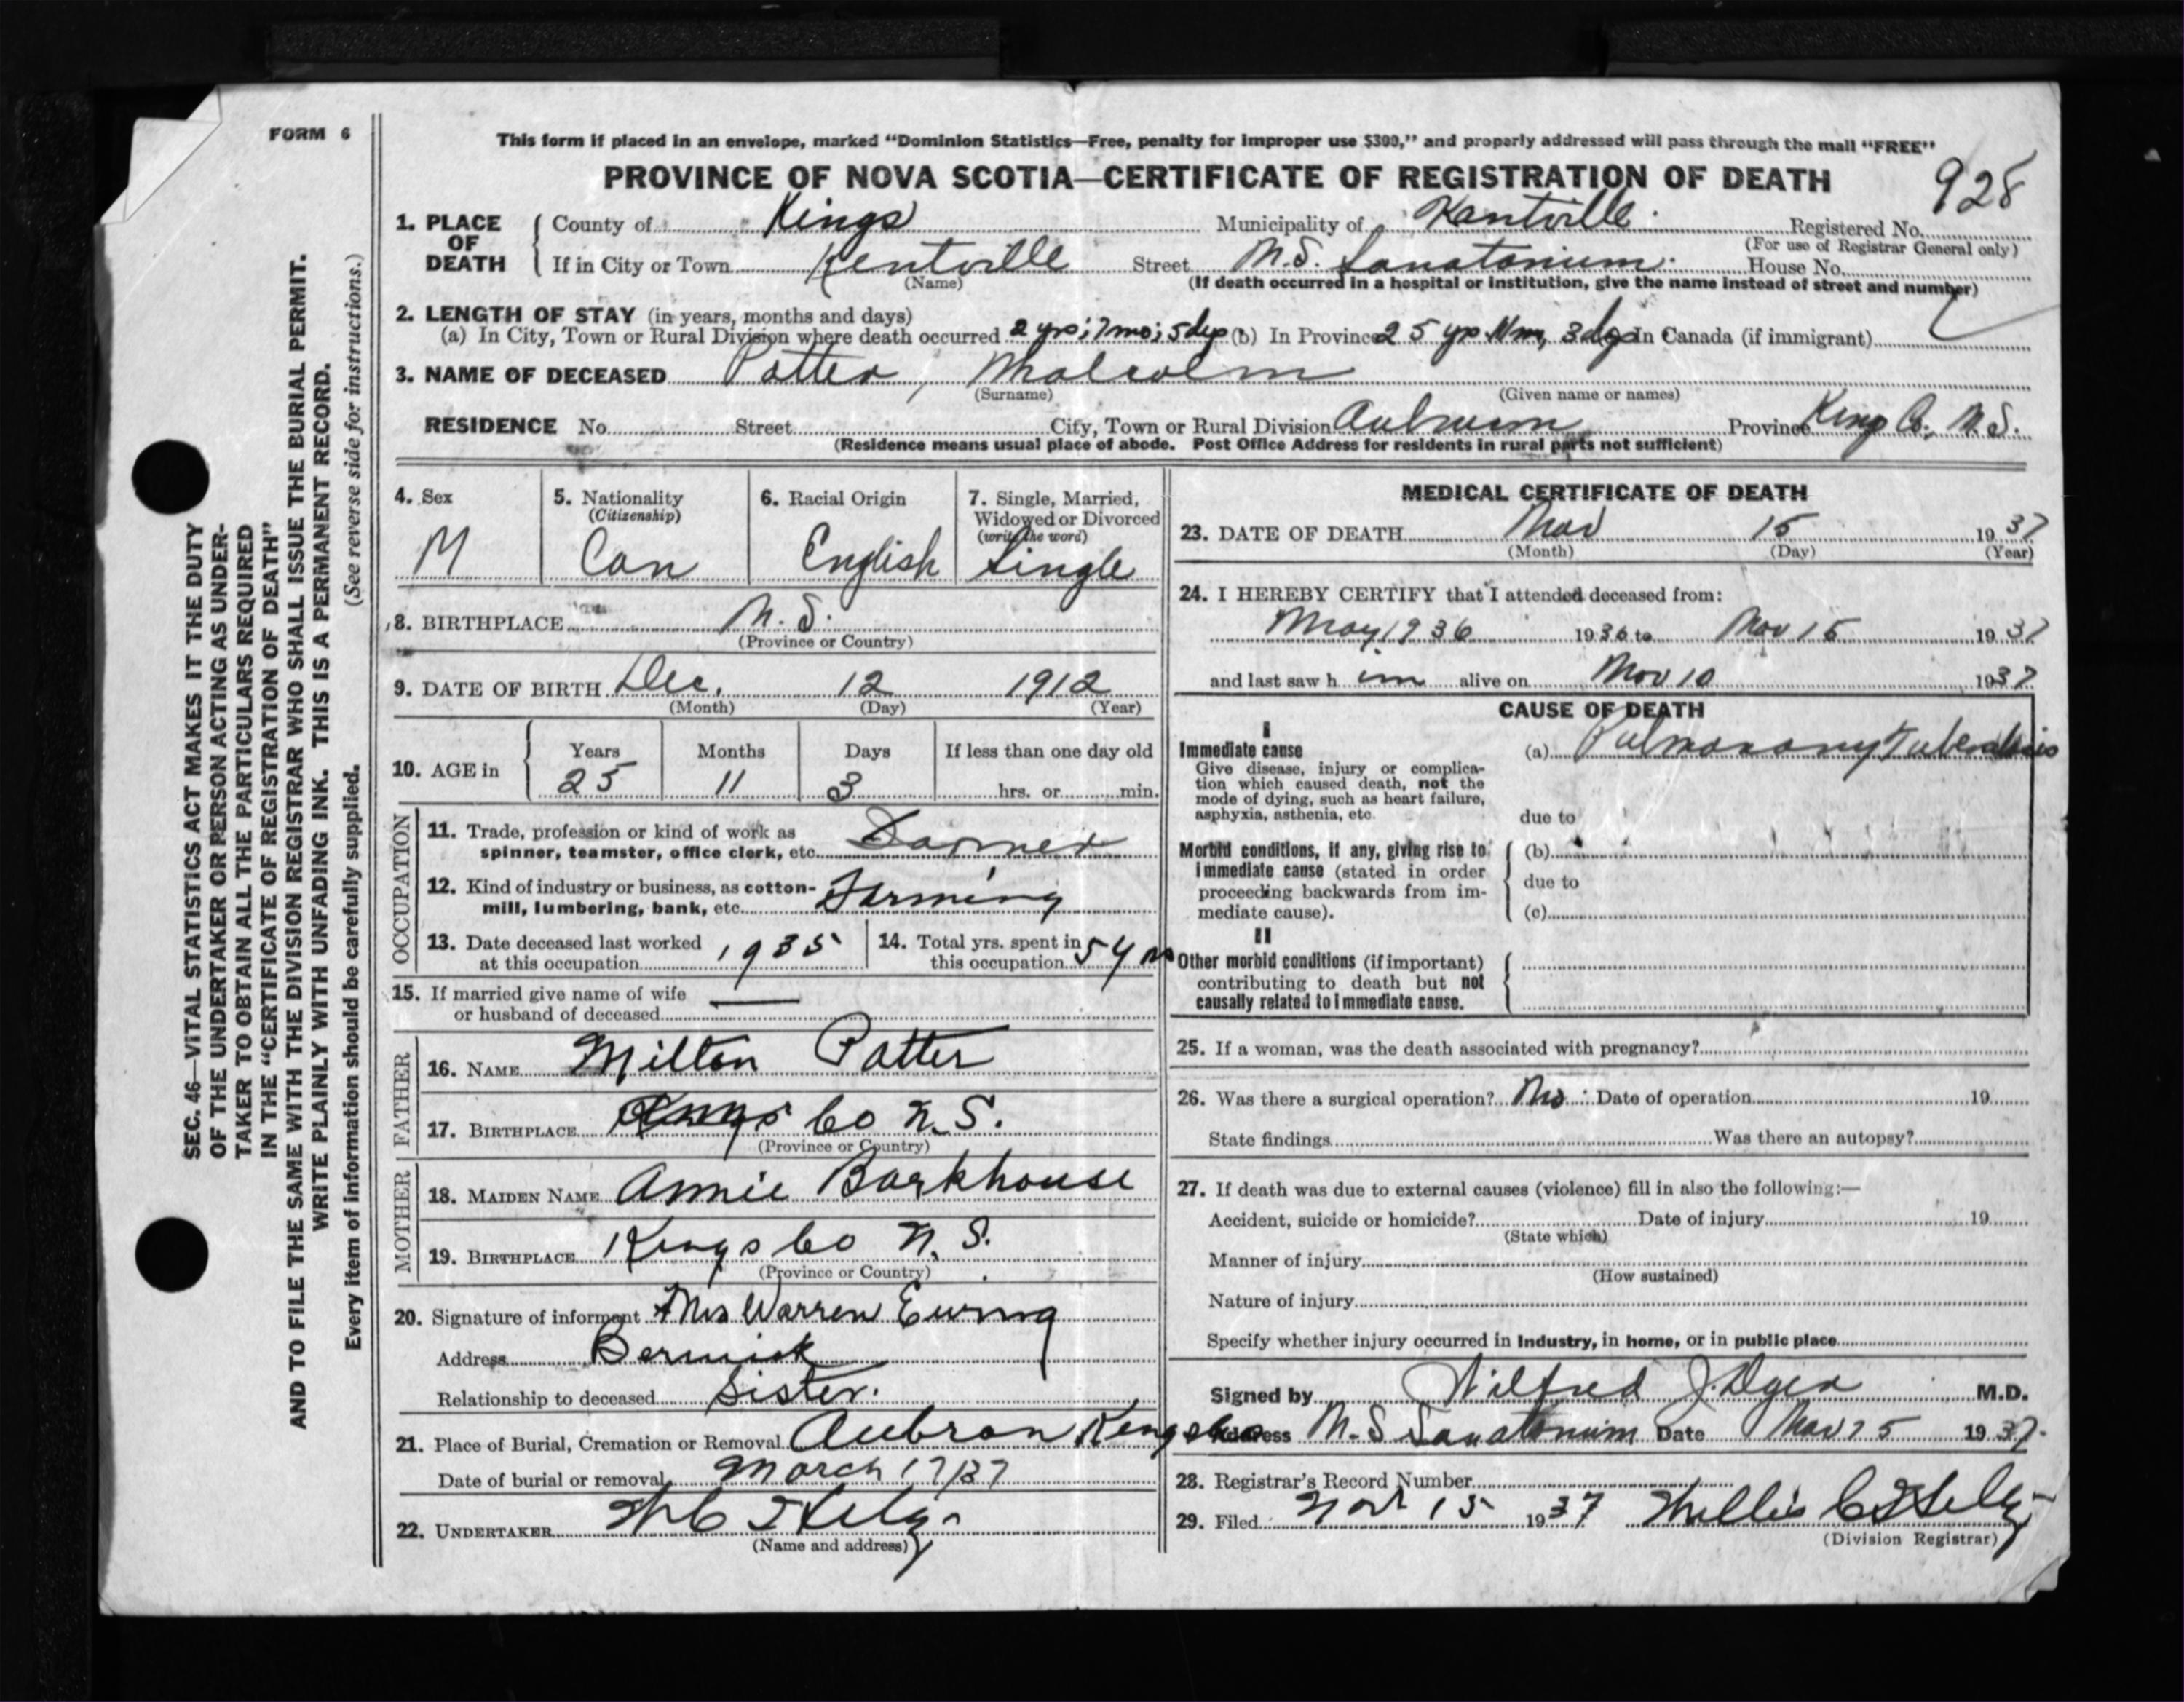 FORM 6
This form if placed in an envelope, marked "Dominion Statistics—Free, penalty for improper use $300," and properly addressed will pass through the mail "FREE"
PROVINCE OF NOVA SCOTIA—CERTIFICATE OF REGISTRATION OF DEATH
928
1. PLACE OF DEATH
County of Kings Municipality of Kentville Registered No.
(For use of Registrar General only)
If in City or Town Kentville Street N.S. Sanatorium House No.
(Name) (If death occurred in a hospital or institution, give the name instead of street and number)
2. LENGTH OF STAY (in years, months and days)
(a) In City, Town or Rural Division where death occurred 2 yrs; 7 mo; 5 dys (b) In Province 25 yrs 11 m, 3 dys In Canada (if immigrant)
3. NAME OF DECEASED Potter, Malcolm
(Surname) (Given name or names)
RESIDENCE No. Street City, Town or Rural Division Auburn Province King Co., N.S.
(Residence means usual place of abode. Post Office Address for residents in rural parts not sufficient)
4. Sex
M
5. Nationality
(Citizenship)
Can
6. Racial Origin
English
7. Single, Married,
Widowed or Divorced
(write the word)
Single
8. BIRTHPLACE N.S.
(Province or Country)
9. DATE OF BIRTH Dec. 12 1912
(Month) (Day) (Year)
10. AGE in
Years Months Days If less than one day old
25 11 3 hrs. or min.
OCCUPATION
11. Trade, profession or kind of work as
spinner, teamster, office clerk, etc. Farmer
12. Kind of industry or business, as cotton-
mill, lumbering, bank, etc. Farming
13. Date deceased last worked
at this occupation 1935
14. Total yrs. spent in
this occupation 5 yrs
15. If married give name of wife
or husband of deceased —
FATHER
16. NAME Milton Potter
17. BIRTHPLACE Kings Co N.S.
(Province or Country)
MOTHER
18. MAIDEN NAME Annie Barkhouse
19. BIRTHPLACE Kings Co N.S.
(Province or Country)
20. Signature of informant Mrs Warren Ewing
Address Berwick
Relationship to deceased Sister.
21. Place of Burial, Cremation or Removal Aubron Kings Co
Date of burial or removal March 17/37
22. UNDERTAKER
(Name and address)
MEDICAL CERTIFICATE OF DEATH
23. DATE OF DEATH Mar 15 1937
(Month) (Day) (Year)
24. I HEREBY CERTIFY that I attended deceased from:
May 1936 1936 to Mar 15 1937
and last saw h im alive on Mar 10 1937
CAUSE OF DEATH
I
Immediate cause
Give disease, injury or complica-
tion which caused death, not the
mode of dying, such as heart failure,
asphyxia, asthenia, etc.
(a) Pulmonary Tuberculosis
due to
Morbid conditions, if any, giving rise to
immediate cause (stated in order
proceeding backwards from im-
mediate cause).
(b)
due to
(c)
II
Other morbid conditions (if important)
contributing to death but not
causally related to immediate cause.
25. If a woman, was the death associated with pregnancy?
26. Was there a surgical operation? No Date of operation 19
State findings Was there an autopsy?
27. If death was due to external causes (violence) fill in also the following:—
Accident, suicide or homicide? Date of injury 19
(State which)
Manner of injury
(How sustained)
Nature of injury
Specify whether injury occurred in Industry, in home, or in public place
Signed by Wilfred J. Dyer M.D.
Address N.S Sanatorium Date Mar 15 1937.
28. Registrar's Record Number
29. Filed Mar 15 1937
(Division Registrar)
SEC. 46—VITAL STATISTICS ACT MAKES IT THE DUTY
OF THE UNDERTAKER OR PERSON ACTING AS UNDER-
TAKER TO OBTAIN ALL THE PARTICULARS REQUIRED
IN THE "CERTIFICATE OF REGISTRATION OF DEATH"
AND TO FILE THE SAME WITH THE DIVISION REGISTRAR WHO SHALL ISSUE THE BURIAL PERMIT.
WRITE PLAINLY WITH UNFADING INK. THIS IS A PERMANENT RECORD.
Every item of information should be carefully supplied. (See reverse side for instructions.)